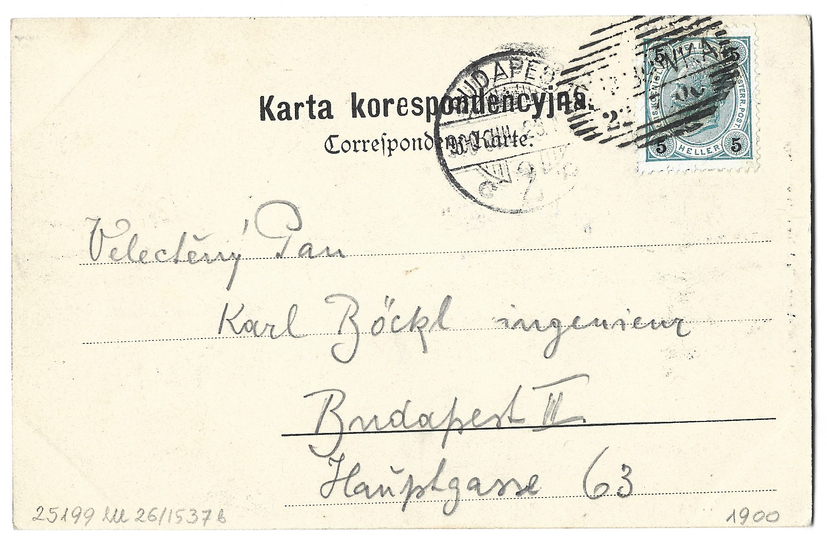 Karta korespondencyjna.
Correspondenz-Karte.
BUDAPEST
5 5
5 HELLER 5
Velectěný Pan
Karl Böckl ingenieur
Budapest II.
Hauptgasse 63
1900